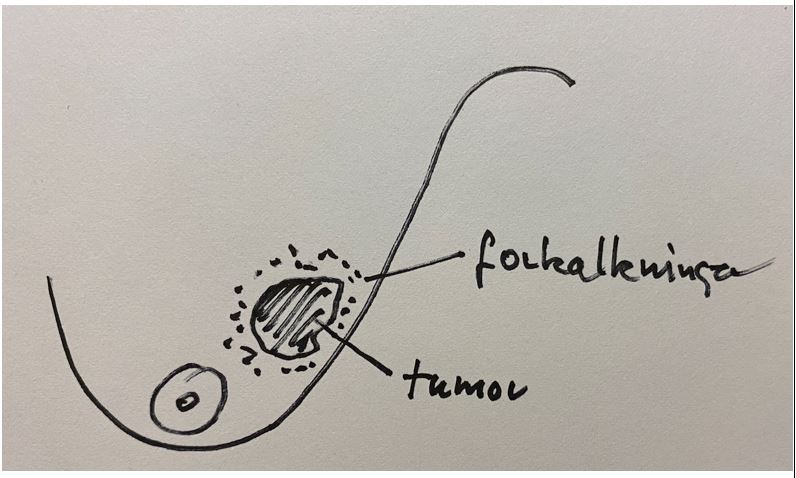 forkalkninga
tumor